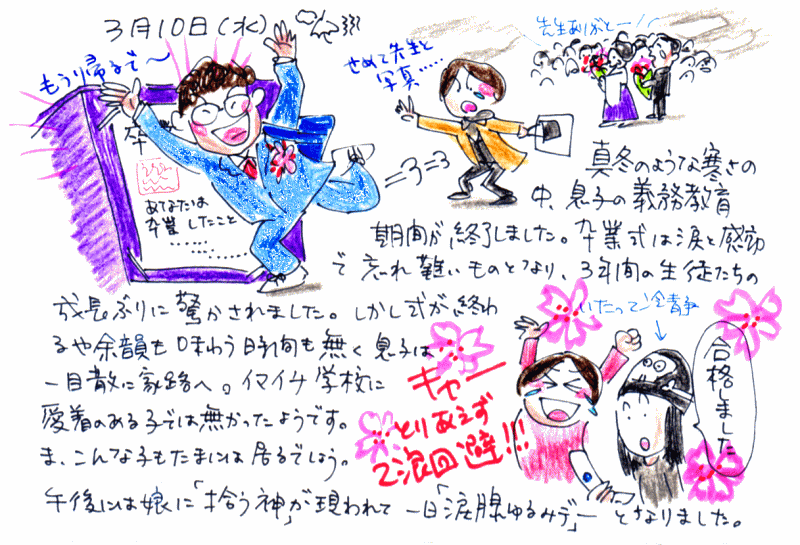 3月10日(水)
もうり帰るで〜
卒
あなたは
卒業したこと
せめて先生と
写真・・・・・
先生ありがとー
=3=3
真冬のような寒さの
中、息子の義務教育
期間が終了しました。卒業式は涙と感動
で忘れ難いものとなり、3年間の生徒たちの
成長ぶりに驚かされました。しかし式が終わ
るや余韻も味わう時間も無く息子は
一目散に家路へ。イマイチ学校に
愛着のある子では無かったようです。
ま、こんな子もたまには居るでしょう。
午後には娘に「拾う神」が現われて一日「涙腺ゆるみデー」となりました。
キャー
とりあえず
2浪回避!!!
いたって冷静
合格しました